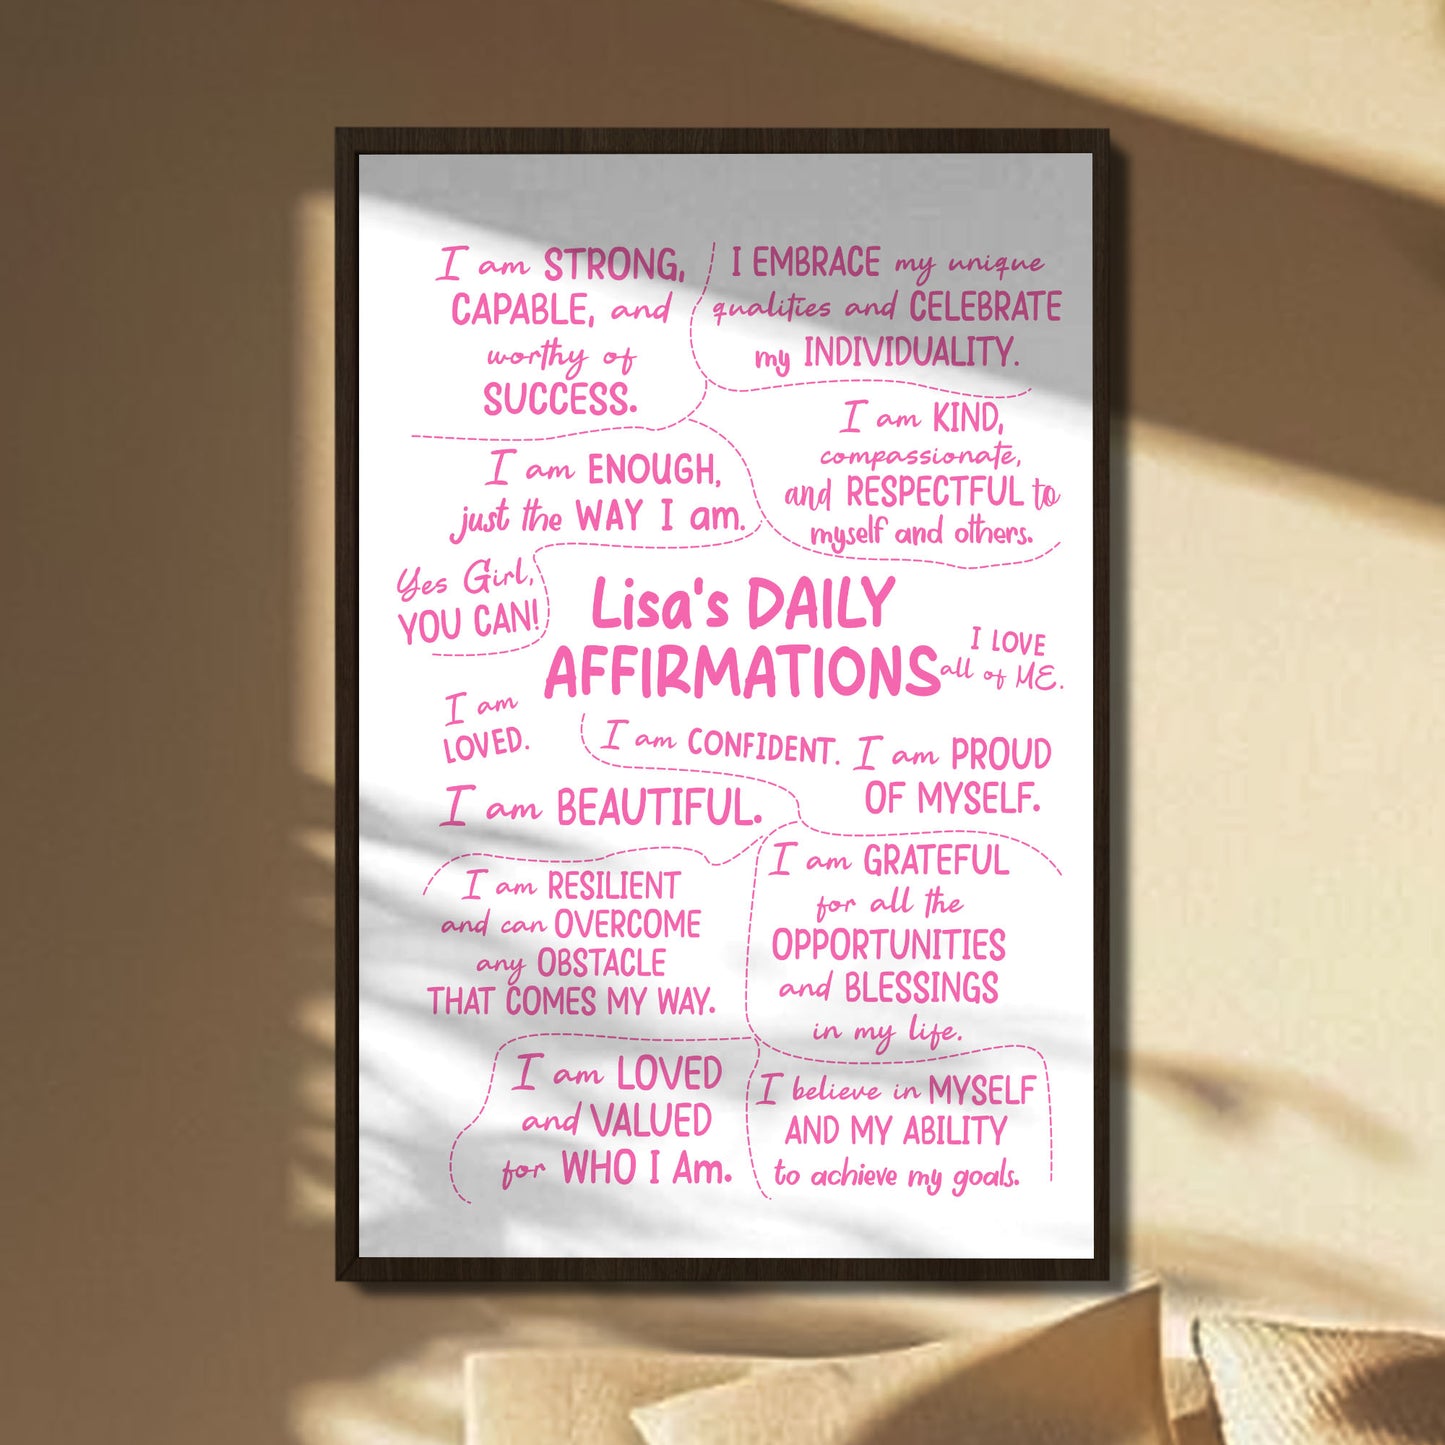 I am STRONG,
CAPABLE, and
worthy of
SUCCESS.
I EMBRACE my unique
qualities and CELEBRATE
my INDIVIDUALITY.
I am KIND,
compassionate,
and RESPECTFUL to
myself and others.
I am ENOUGH,
just the WAY I am.
Yes Girl,
YOU CAN!
Lisa's DAILY
AFFIRMATIONS
I LOVE
all of ME.
I am
LOVED.
I am CONFIDENT.
I am PROUD
OF MYSELF.
I am BEAUTIFUL.
I am RESILIENT
and can OVERCOME
any OBSTACLE
THAT COMES MY WAY.
I am GRATEFUL
for all the
OPPORTUNITIES
and BLESSINGS
in my life.
I am LOVED
and VALUED
for WHO I Am.
I believe in MYSELF
AND MY ABILITY
to achieve my goals.